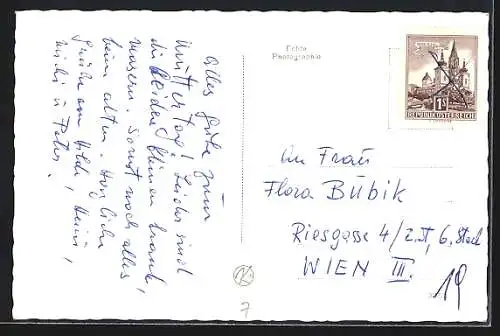 Alles gute zum
Muttertag! Leider sind
die beiden Kleinen krank
Masern. Sonst noch alles
beim alten. Herzliche
Grüße an Hilde, Heini,
Michi u Peter.
Echte
Photographie
1S
REPUBLIK ÖSTERREICH
An Frau
Flora Bubik
Riesgasse 4/2.St, 6. Stock
WIEN III.
19
K
7